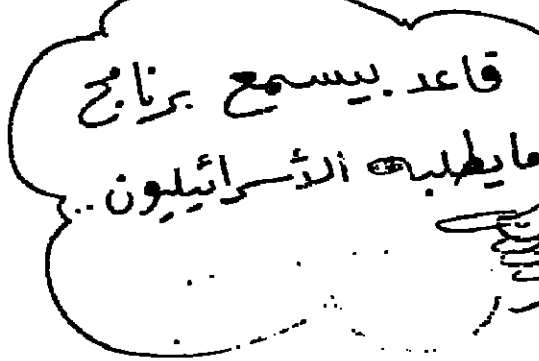 قاعد بيسمع برنامج
مايطلبه الأسرائيليون..